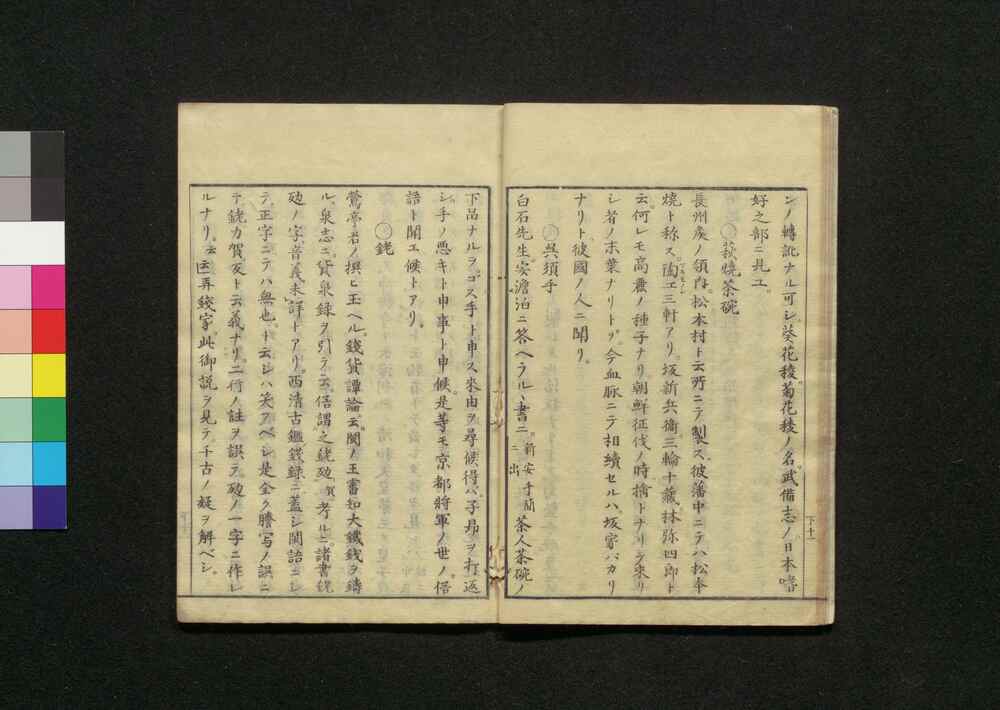 ンノ轉訛ナル可シ葵花稜菊花稜ノ名武備志ノ日本嗜
好之部ニ見エ
萩燒茶碗
長州侯ノ領内松本村ト云所ニテ製ス彼藩中ニテハ松本
燒ト称ス陶工三軒アリ坂新兵衞三輪十藏林弥四郎ト
云何レモ高麗ノ種子ナリ朝鮮征伐ノ時擒トナリテ来リ
シ者ノ末葉ナリト今血脈ニテ相續セルハ坂家バカリ
ナリト彼國ノ人ニ聞リ
呉須手
白石先生安澹泊ニ答ヘラルヽ書ニ新安手簡ニ出茶人茶碗ノ
下品ナルヲゴス手ト申ス来由ヲ尋候得バ子昻ヲ打返
シ手ノ悪キト申事ト申候是等モ京都將軍ノ世ノ俗
語ト聞エ候トアリ
銠
鶯亭君ノ撰ヒ玉ヘル錢貨譚論云閩ノ王審知大鐵錢ヲ鑄
ル泉志ニ貨泉錄ヲ引テ云俗謂之銠㓛賀考ルニ諸書銠
㓛ノ字音義未詳トアリ西清古鑑錢錄ニ蓋シ閩語ニシ
テ正字ニテハ無也ト云シハ笑フベシ是全ク謄写ノ誤ニ
テ銠力賀反ト云義ナリ二行ノ註ヲ誤テ㓛ノ一字ニ作レ
ルナリ云云弄錢家此御説ヲ見テ千古ノ疑ヲ解ベシ
下十一